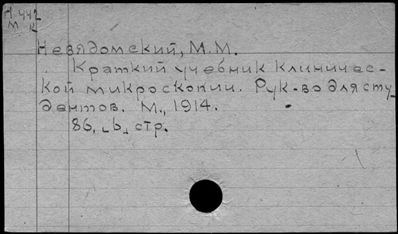 Н.442
М.
Невядомский, М.М.
Краткий учебник клиничес-
кой микроскопии. Рук-во для сту
дентов. М., 1914.
86, стр.